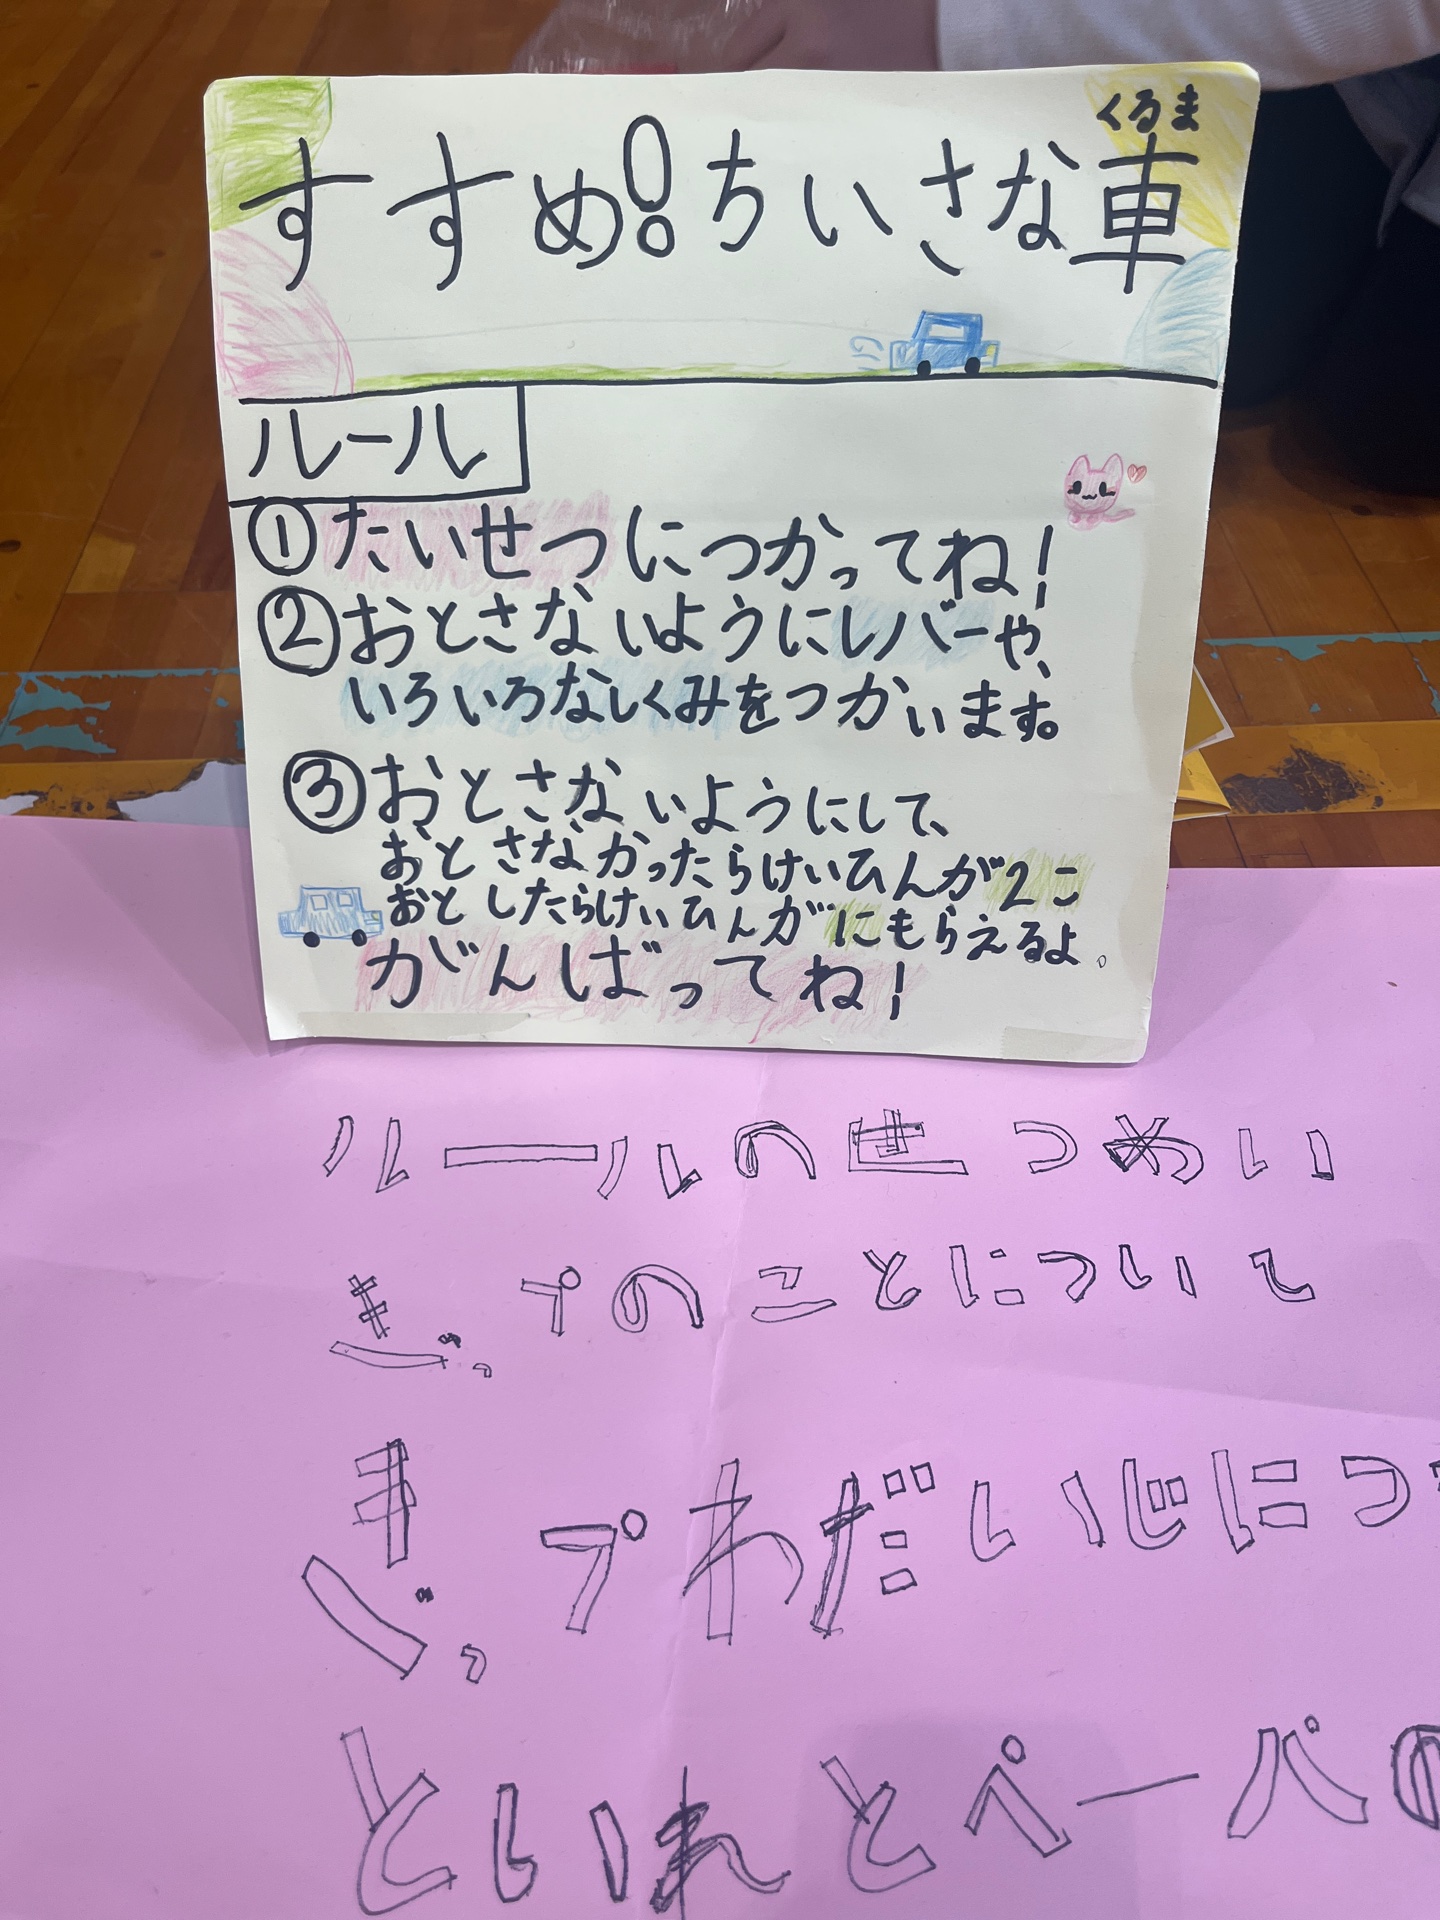 くるま
すすめ!ちいさな車
ルール
①たいせつにつかってね!
②おとさないようにレバーや、
いろいろなしくみをつかいます。
③おとさないようにして、
おとさなかったらけいひんが2こ
おとしたらけいひんがにもらえるよ。
がんばってね!
ルールのせつめい
ぎ、プのことについて
ぎ、プわだいじにつ
といれとペーパの